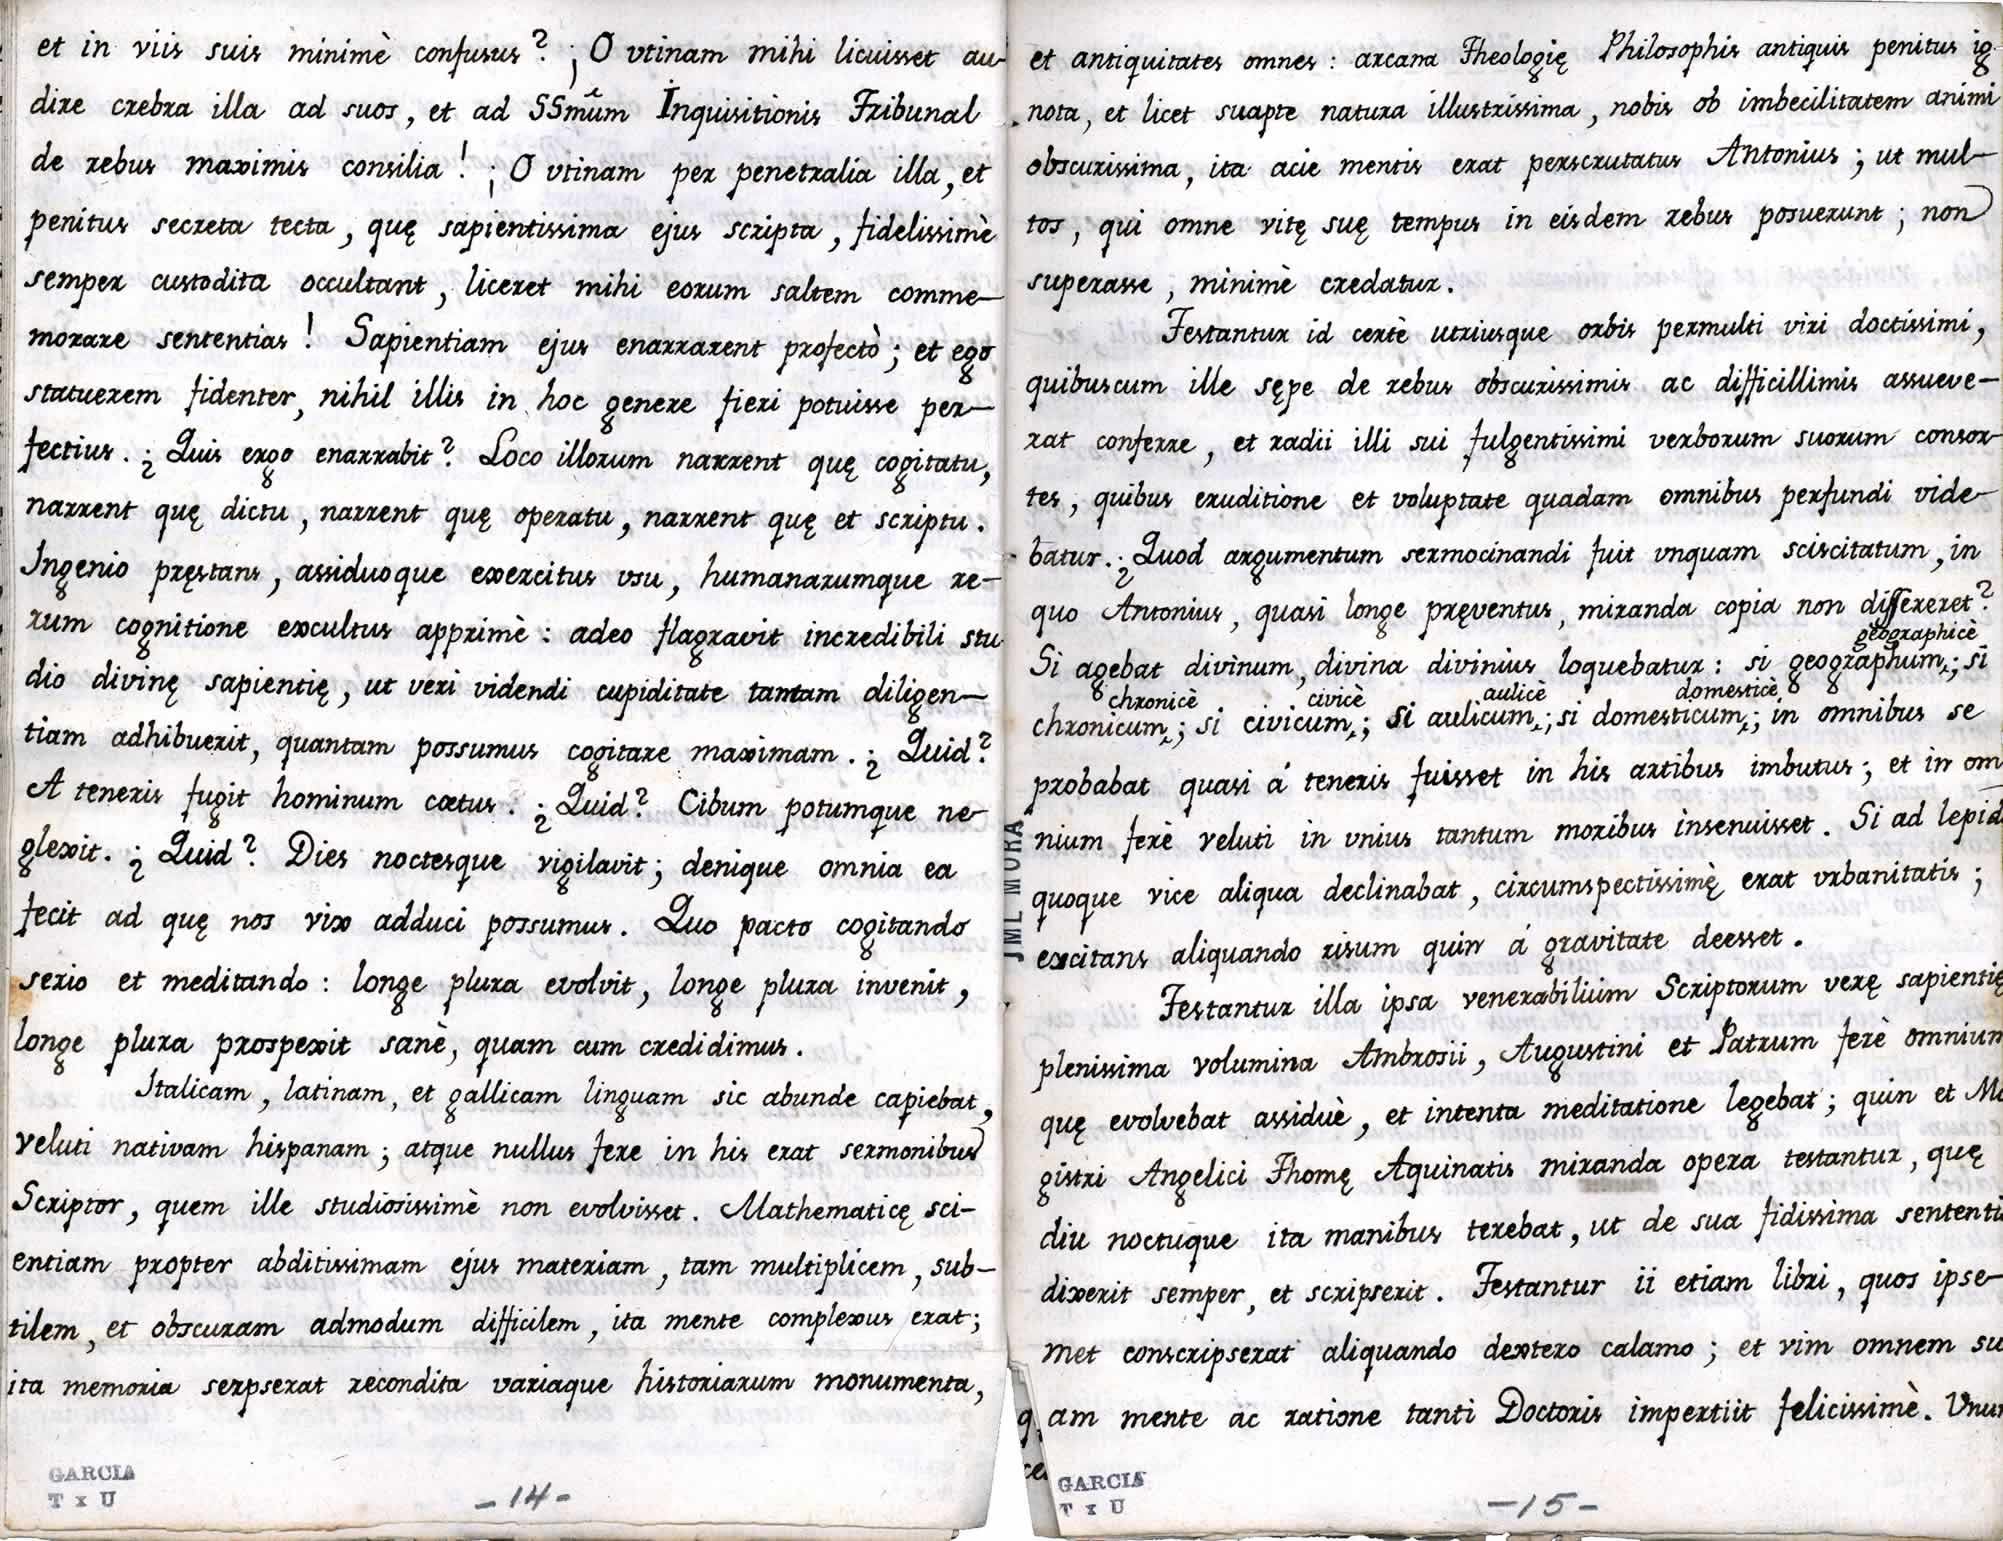 et in viis suis minimè confusus? ¡O vtinam mihi licuisset au-
dire crebra illa ad suos, et ad SSmûm Inquisitionis Tribunal
de rebus maximis consilia! ¡O vtinam per penetralia illa, et
penitus secreta tecta, quę sapientissima ejus scripta, fidelissimè
semper custodita occultant, liceret mihi eorum saltem comme-
morare sententias! Sapientiam ejus enarrarent profectò; et ego
statuerem fidenter, nihil illis in hoc genere fieri potuisse per-
fectius. ¿Quis ergo enarrabit? Loco illorum narrent quę cogitatu,
narrent quę dictu, narrent quę operatu, narrent quę et scriptu.
Ingenio pręstans, assiduoque exercitus vsu, humanarumque re-
rum cognitione excultus apprimè: adeo flagravit incredibili stu-
dio divinę sapientię, ut veri videndi cupiditate tantam diligen-
tiam adhibuerit, quantam possumus cogitare maximam. ¿Quid?
A teneris fugit hominum cœtus. ¿Quid? Cibum potumque ne-
glexit. ¿Quid? Dies noctesque vigilavit; denique omnia ea
fecit ad quę nos vix adduci possumus. Quo pacto cogitando
serio et meditando: longe plura evolvit, longe plura invenit,
longe plura prospexit sanè, quam cum credidimus.
Italicam, latinam, et gallicam linguam sic abunde capiebat,
veluti nativam hispanam; atque nullus fere in his erat sermonibus
Scriptor, quem ille studiosissimè non evolvisset. Mathematicę sci-
entiam propter abditissimam ejus materiam, tam multiplicem, sub-
tilem, et obscuram admodum difficilem, ita mente complexus erat;
ita memoria serpserat recondita variaque historiarum monumenta,
GARCIA
T x U
-14-
et antiquitates omnes: arcana Theologię Philosophis antiquis penitus ig-
nota, et licet suapte natura illustrissima, nobis ob imbecilitatem animi
obscurissima, ita acie mentis erat perscrutatus Antonius; ut mul-
tos, qui omne vitę suę tempus in eisdem rebus posuerunt; non
superasse, minimè credatur.
Testantur id certè utriusque orbis permulti viri doctissimi,
quibuscum ille sępe de rebus obscurissimis ac difficillimis assueve-
rat conferre, et radii illi sui fulgentissimi verborum suorum consor-
tes, quibus eruditione et voluptate quadam omnibus perfundi vide-
batur. ¿Quod argumentum sermocinandi fuit vnquam sciscitatum, in
quo Antonius, quasi longe pręventus, miranda copia non differeret?
geographicè
Si agebat divinum, divina divinius loquebatur: si geographum; si
chronicè civicè aulicè domesticè
chronicum; si civicum; si aulicum; si domesticum; in omnibus se
probabat quasi á teneris fuisset in his artibus imbutus; et in om-
nium ferè veluti in vnius tantum moribus insenuisset. Si ad lepid
quoque vice aliqua declinabat, circumspectissimę erat vrbanitatis;
excitans aliquando risum quin á gravitate deesset.
Testantur illa ipsa venerabilium Scriptorum verę sapientię
plenissima volumina Ambrosii, Augustini et Patrum ferè omnium
quę evolvebat assiduè, et intenta meditatione legebat; quin et Ma
gistri Angelici Thomę Aquinatis miranda opera testantur, quę
diu noctuque ita manibus terebat, ut de sua fidissima sententia
dixerit semper, et scripserit. Testantur ii etiam libri, quos ipse-
met conscripserat aliquando dextero calamo; et vim omnem su
am mente ac ratione tanti Doctoris impertiit felicissimè. Vnum
JML MORA
GARCIA
T x U
-15-